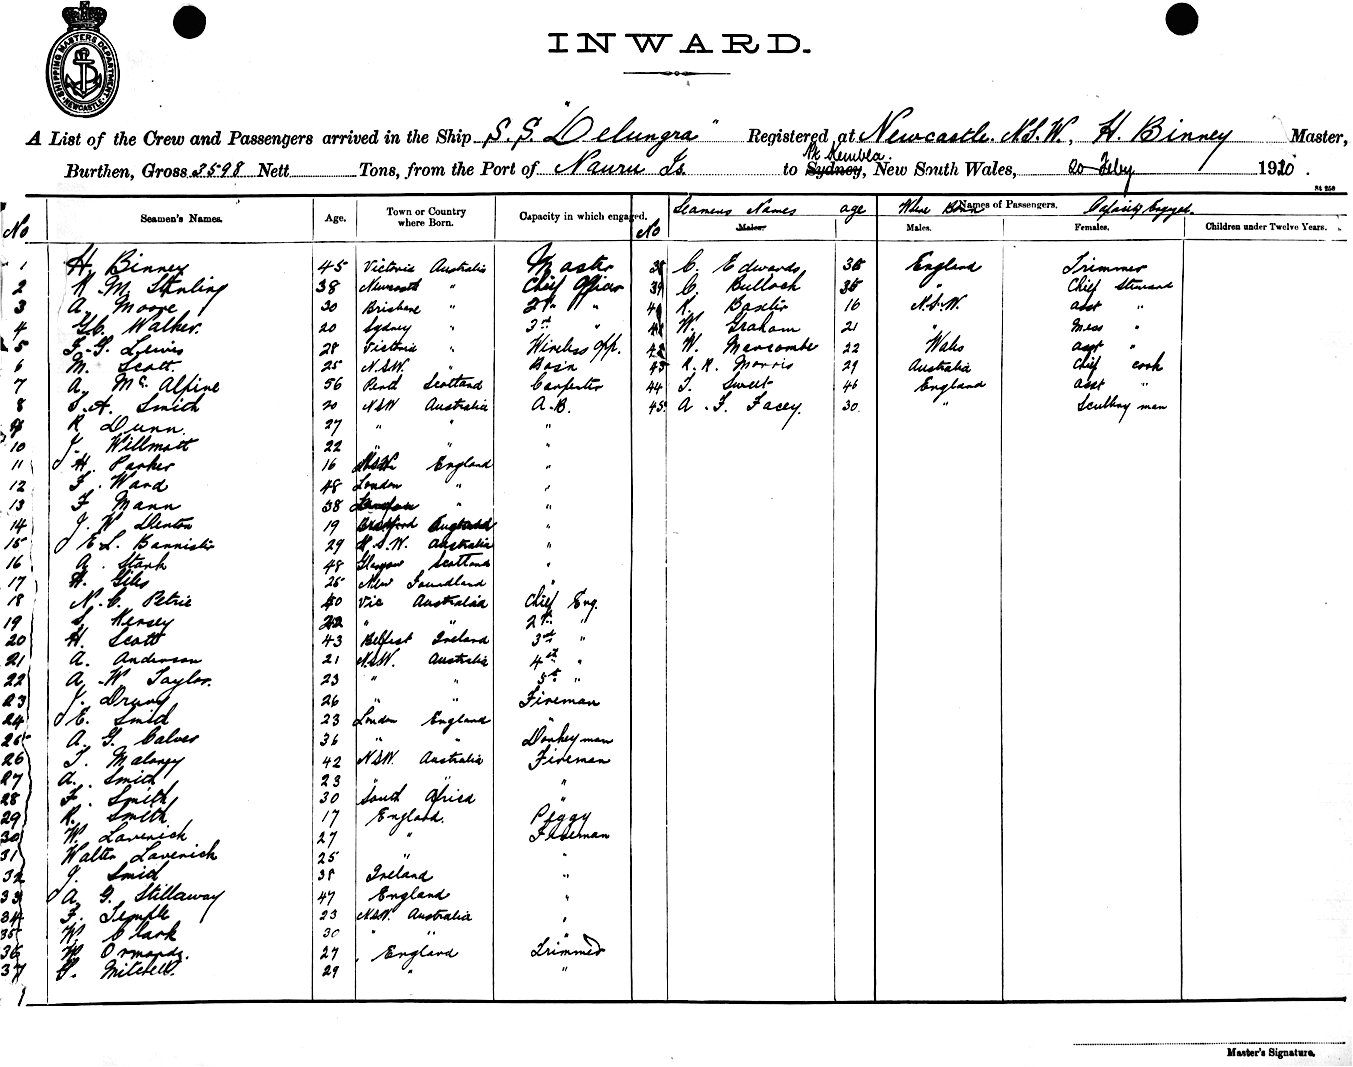 INWARD.
SHIPPING MASTERS DEPARTMENT NEWCASTLE
A List of the Crew and Passengers arrived in the Ship S.S. "Delungra" Registered at Newcastle. N.S.W., H. Binney Master,
Burthen, Gross 3598 Nett Tons, from the Port of Nauru Is. to Pt Kembla. Sydney, New South Wales, 20 Feby 1920.
No Seamen's Names. Age. Town or Country where Born. Capacity in which engaged. No Seamens Names Males. age Where Born Names of Passengers. Males. Capacity Engaged. Females. Children under Twelve Years.
1 H. Binney 45 Victoria Australia Master 38 C. Edwards 35 England Trimmer
2 M. Stirling 38 Newcastle " Chief Officer 39 C. Bulloch 35 " Chief Steward
3 A. Moore 30 Brisbane " 2nd " R. Baxter 16 N.S.W. asst "
4 Walker. 20 Sydney " 3rd " W. Graham 21 " Mess "
5 Lewis 28 Victoria " Wireless Opp. 42 W. Marcombe 22 Wales asst "
6 M. Scott 25 N.S.W. " Bosn 43 R. R. Morris 29 Australia Chief cook
7 A. McAlpine 56 Perth Scotland Carpenter 44 T. Sweet 46 England asst "
8 Smith 20 NSW Australia A.B. 45 A. F. Facey. 30 " Scullery man
9 R Dunn 27 " " "
10 J. Willmott 22 " " "
11 H. Parker 16 England "
12 F. Ward 48 London " "
13 F. Mann 38 " "
14 J. W. Denton 19 Bradford England "
15 E L. Bannister 29 N.S.W. Australia "
16 A. Stark 48 Glasgow Scotland "
17 H. Giles 25 New Foundland "
18 N. C. Petrie 40 Vic Australia Chief Eng.
19 S. Kersey 42 " " 2nd "
20 H. Scott 43 Belfast Ireland 3rd "
21 A. Anderson 21 N.S.W. Australia 4th "
22 A. W. Taylor. 23 " " 5th "
23 J. Drury 26 " " Fireman
24 E. Smid 23 London England "
25 A. G. Calver 36 " " Donkeyman
26 T. Maloney 42 N.S.W. Australia Fireman
27 A. Smith 23 " " "
28 F. Smith 30 South Africa "
29 R. Smith 17 England. Peggy
30 W. Laverick 27 " Fireman
31 Walter Laverick 25 " "
32 J. Smid 38 Ireland "
33 A. G. Stillaway 47 England "
34 F. Temple 23 N.S.W. Australia "
35 W. Clark 30 " " "
36 W. Ormandy. 27 England Trimmer
37 Mitchell. 29 " "
Master's Signature.